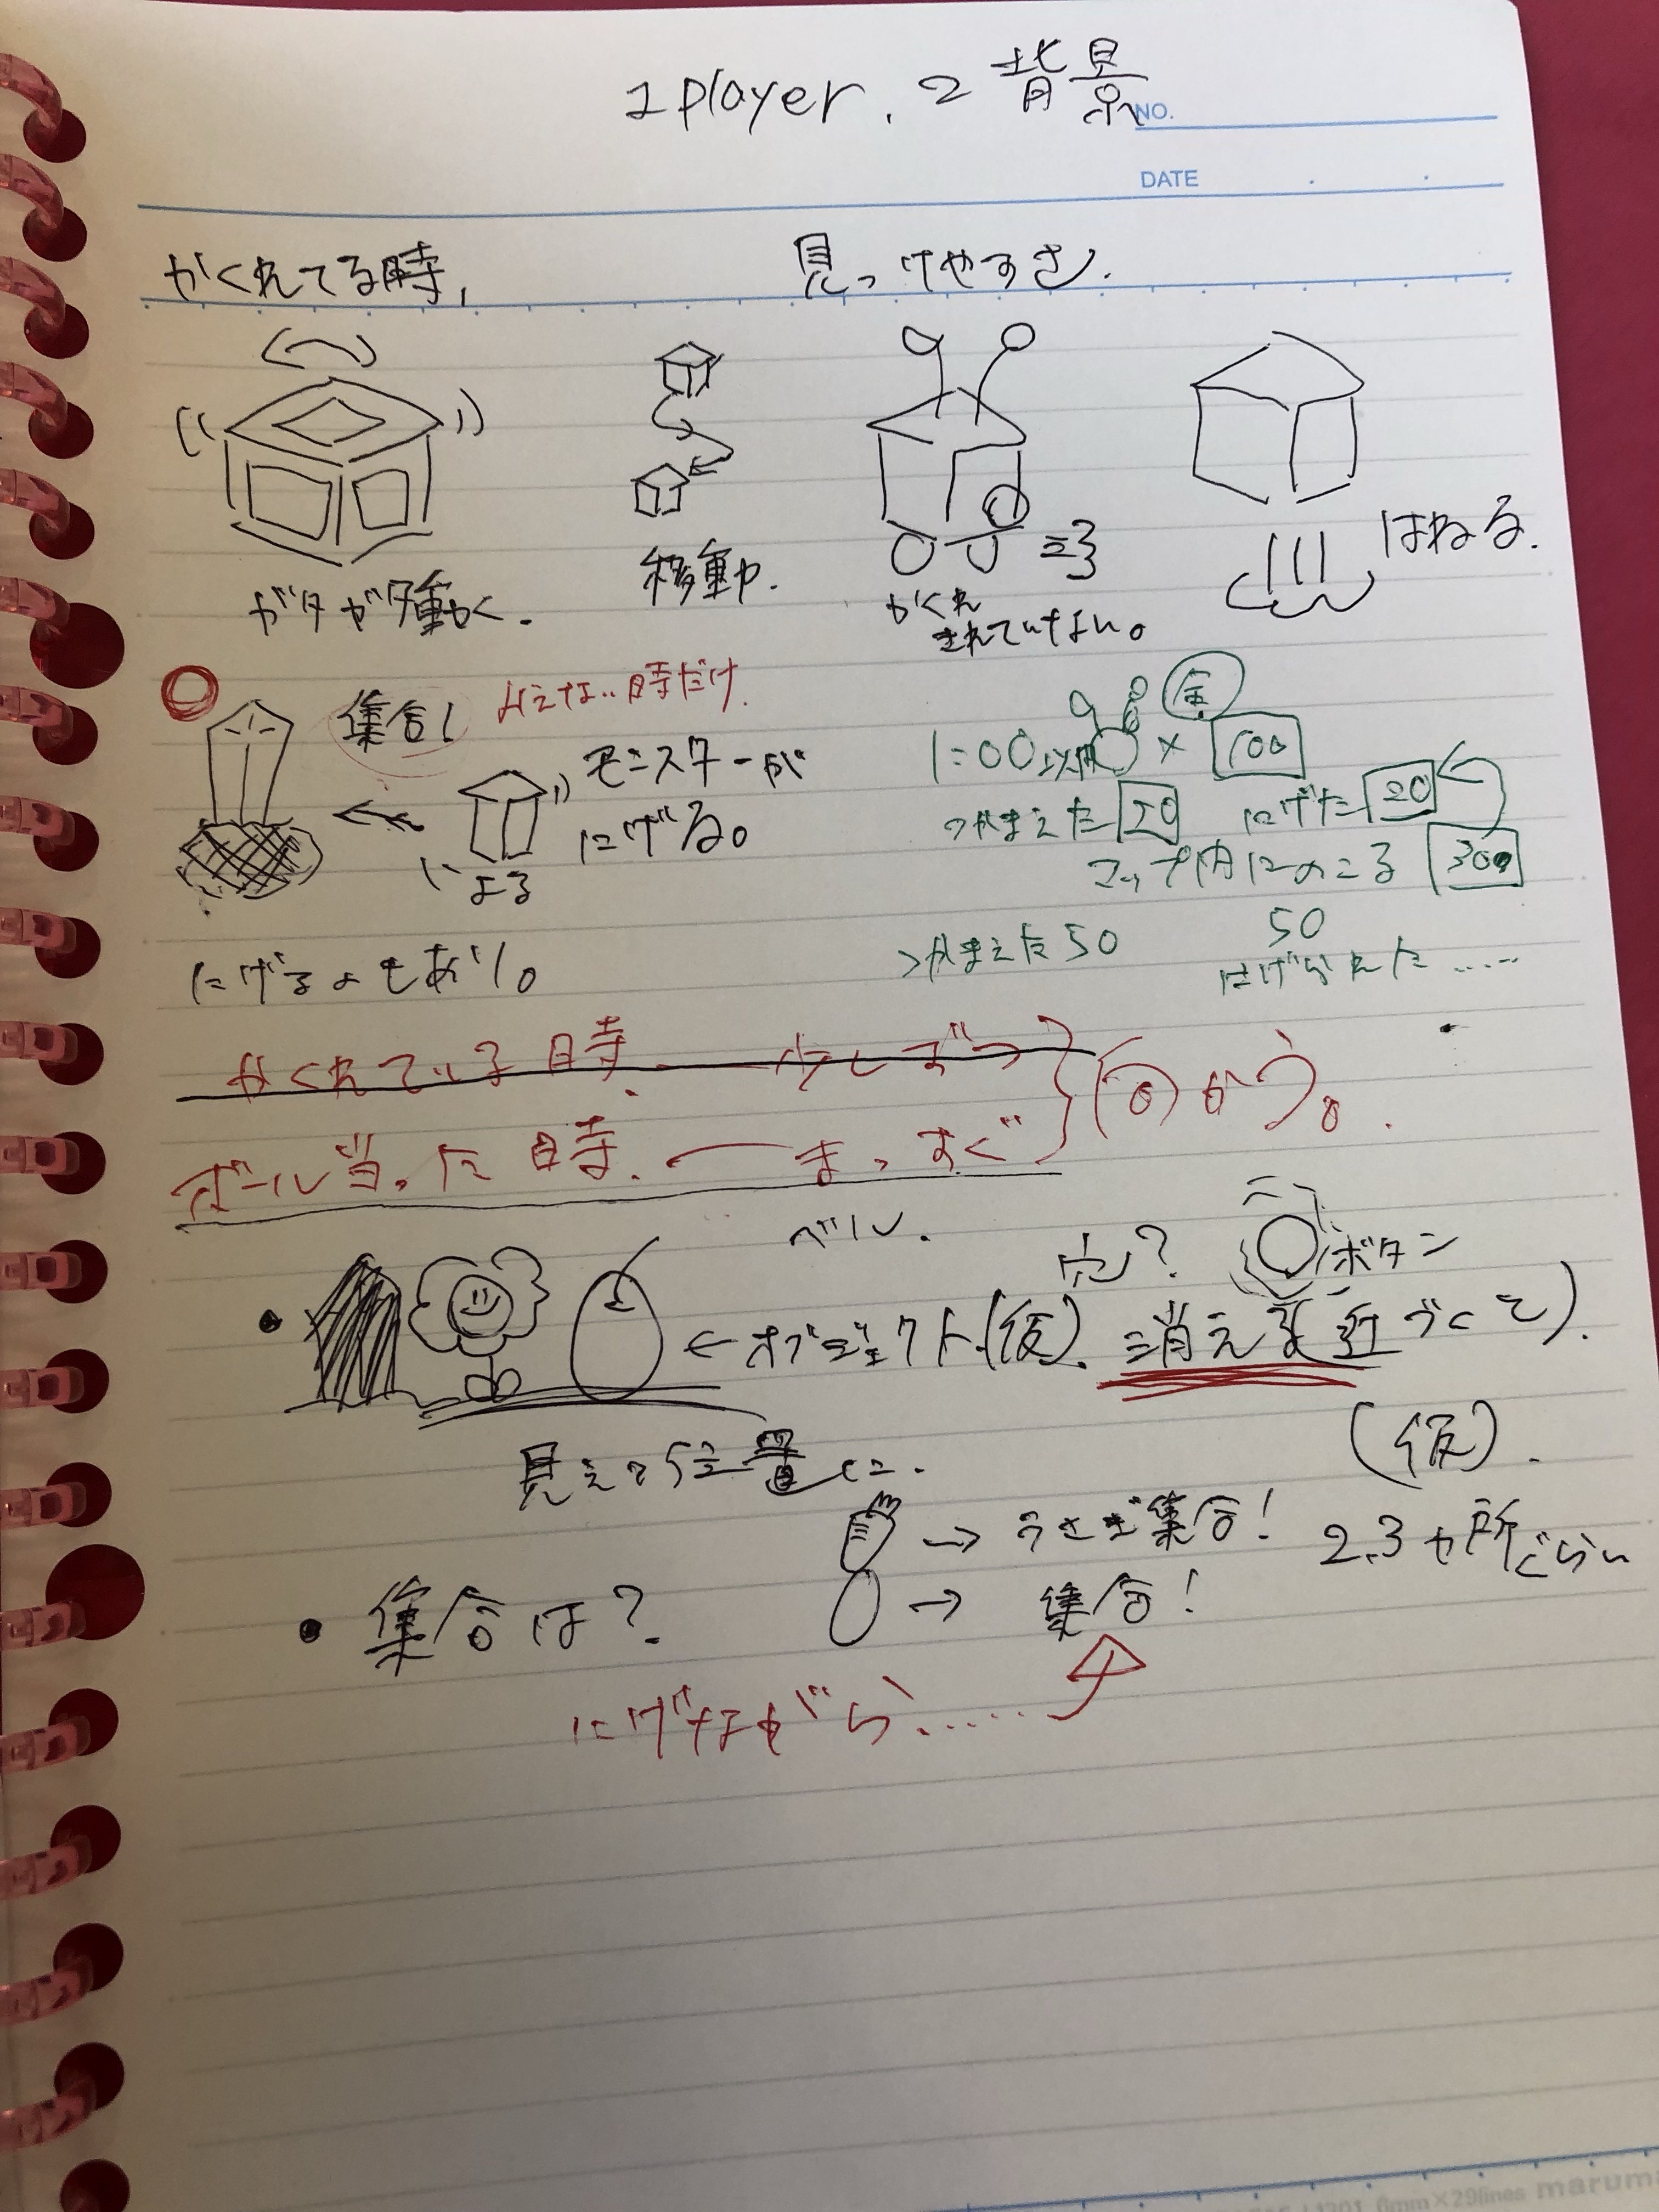 1 player. 2 背景
NO.
DATE
かくれてる時、
見つけやすさ.
ガタガタ動く.
移動.
かくれ
きれていない。
はねる.
集合!
みえない時だけ
モンスターが
にげる。
よる
にげるよもあり。
1:00以内 × 100
金
つかまえた
にげた 20
マップ内にのこる 300
つかまえた 50
50
にげられた……
かくれている時. 少しずつ
ボール当った時. まっすぐ
向かう。
ベル.
穴?
ボタン
←オブジェクト(仮).
消える
近づくと).
見える位置に.
(仮).
→ うさぎ集合!
2.3ヵ所ぐらい
・集合は?
→ 集合!
にげながら……
6mm×29lines marum